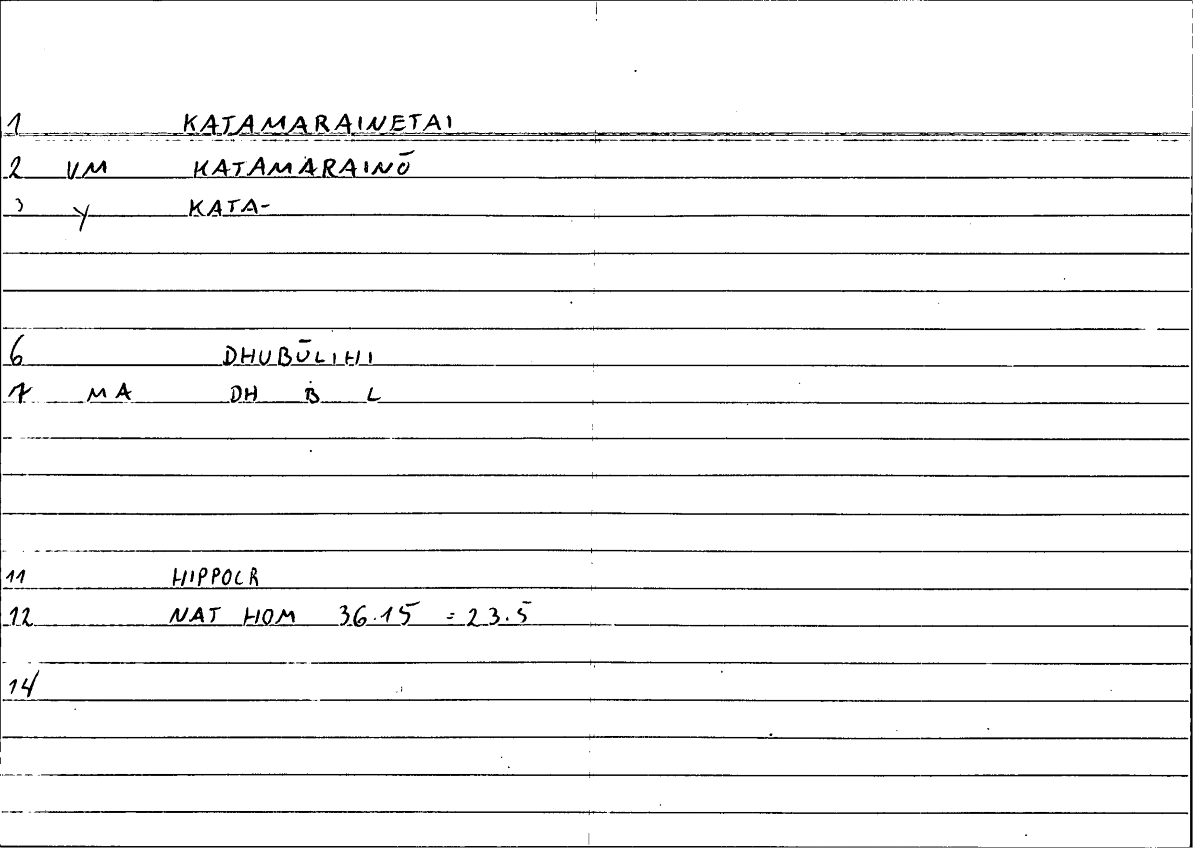 1 KATAMARAINETAI
2 VM KATAMARAINŌ
3 Y KATA-
6 DHUBŪLIHI
7 MA DH B L
11 HIPPOCR
12 NAT HOM 36.15 = 23.5
14